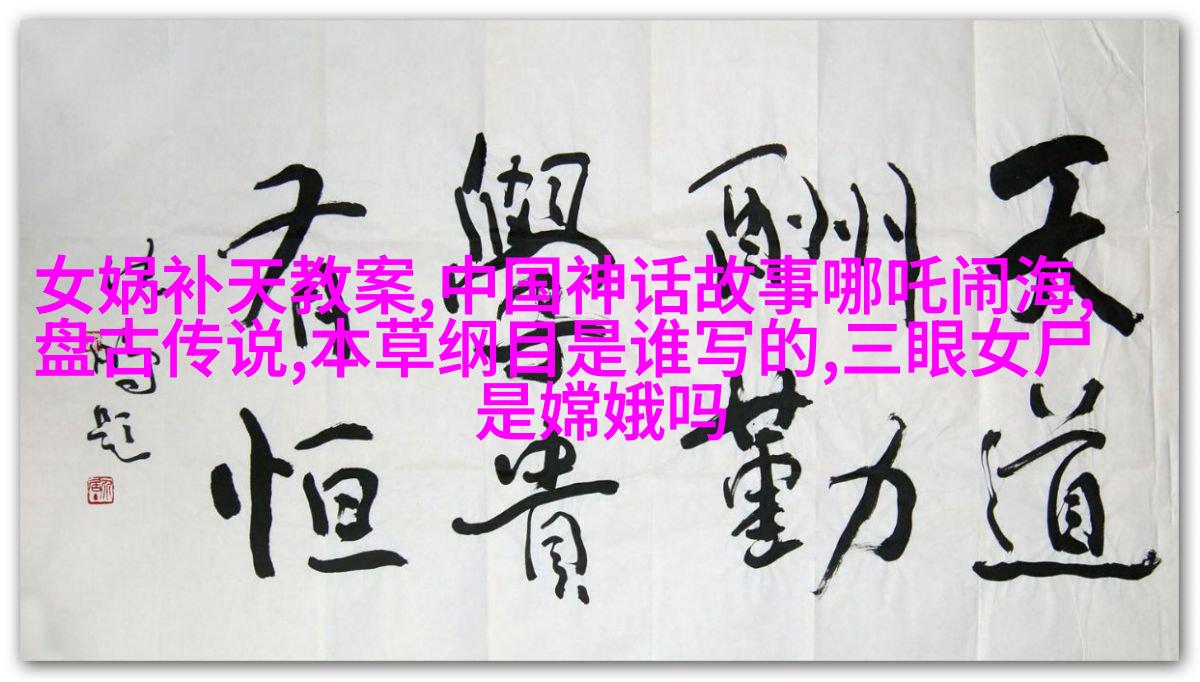 女娲补天教案,中国神话故事哪吒闹海,
盘古传说,本草纲目是谁写的,三眼女尸
是嫦娥吗
天道
酬勤
學貴
有恒
題